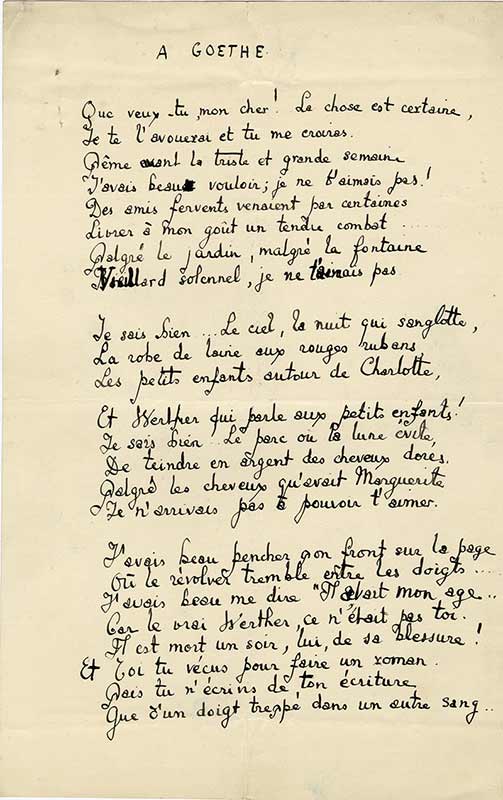 A GOETHE
Que veux-tu, mon cher! La chose est certaine,
Je te l'avouerai et tu me croiras.
Même avant la triste et grande semaine
J'avais beau vouloir; je ne t'aimais pas!
Des amis fervents venaient par centaines
Livrer à mon goût un tendu combat ....
Malgré le jardin, malgré la fontaine
Vieillard solennel, je ne t'aimais pas
Je sais bien ... Le ciel, la nuit qui sanglotte,
La robe de laine aux rouges rubans
Les petits enfants autour de Charlotte,
Et Werther qui parle aux petits enfants!
Je sais bien .. Le parc où la lune évite,
De teindre en argent des cheveux dorés.
Malgré les cheveux qu'avait Marguerite
Je n'arrivais pas à pouvoir t'aimer.
J'avais beau pencher mon front sur la page
Où le révolver tremble entre les doigts ....
J'avais beau me dire "Il avait mon age ..
Car le vrai Werther, ce n'était pas toi.
Il est mort un soir, lui, de sa blessure!
Et Toi tu vécus pour faire un roman.
Mais tu n'écrivis de ton écriture
Que d'un doigt trempé dans un autre sang ..